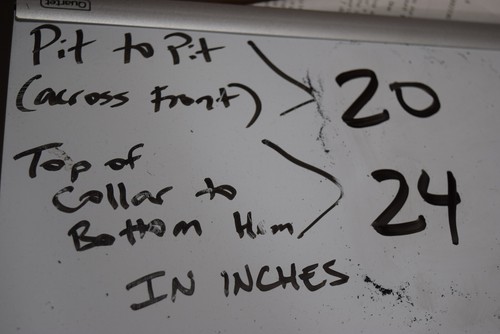 Quartet
Pit to Pit
(across Front)
20
Top of
Collar to
Bottom Hem
24
IN INCHES